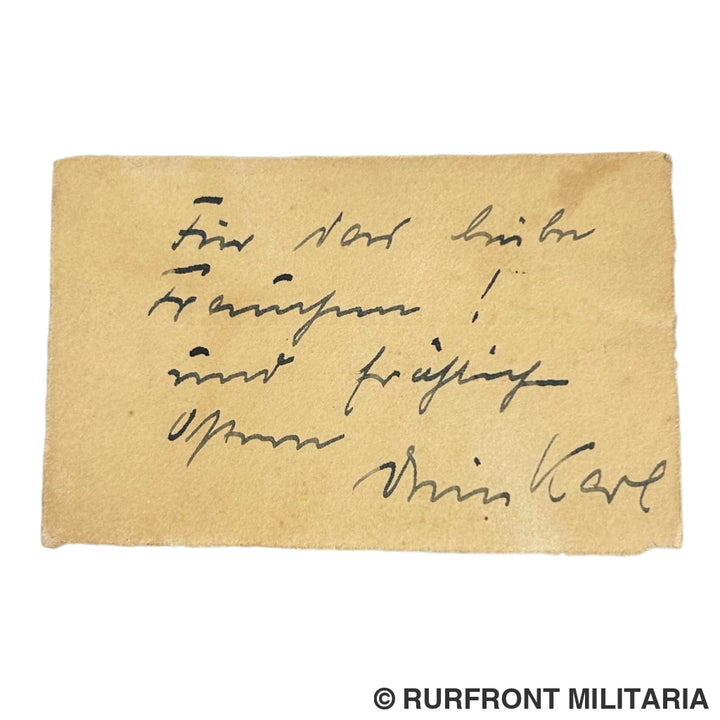 Für das liebe
Frauchen!
und fröhliche
Ostern
Dein Karl
© RURFRONT MILITARIA